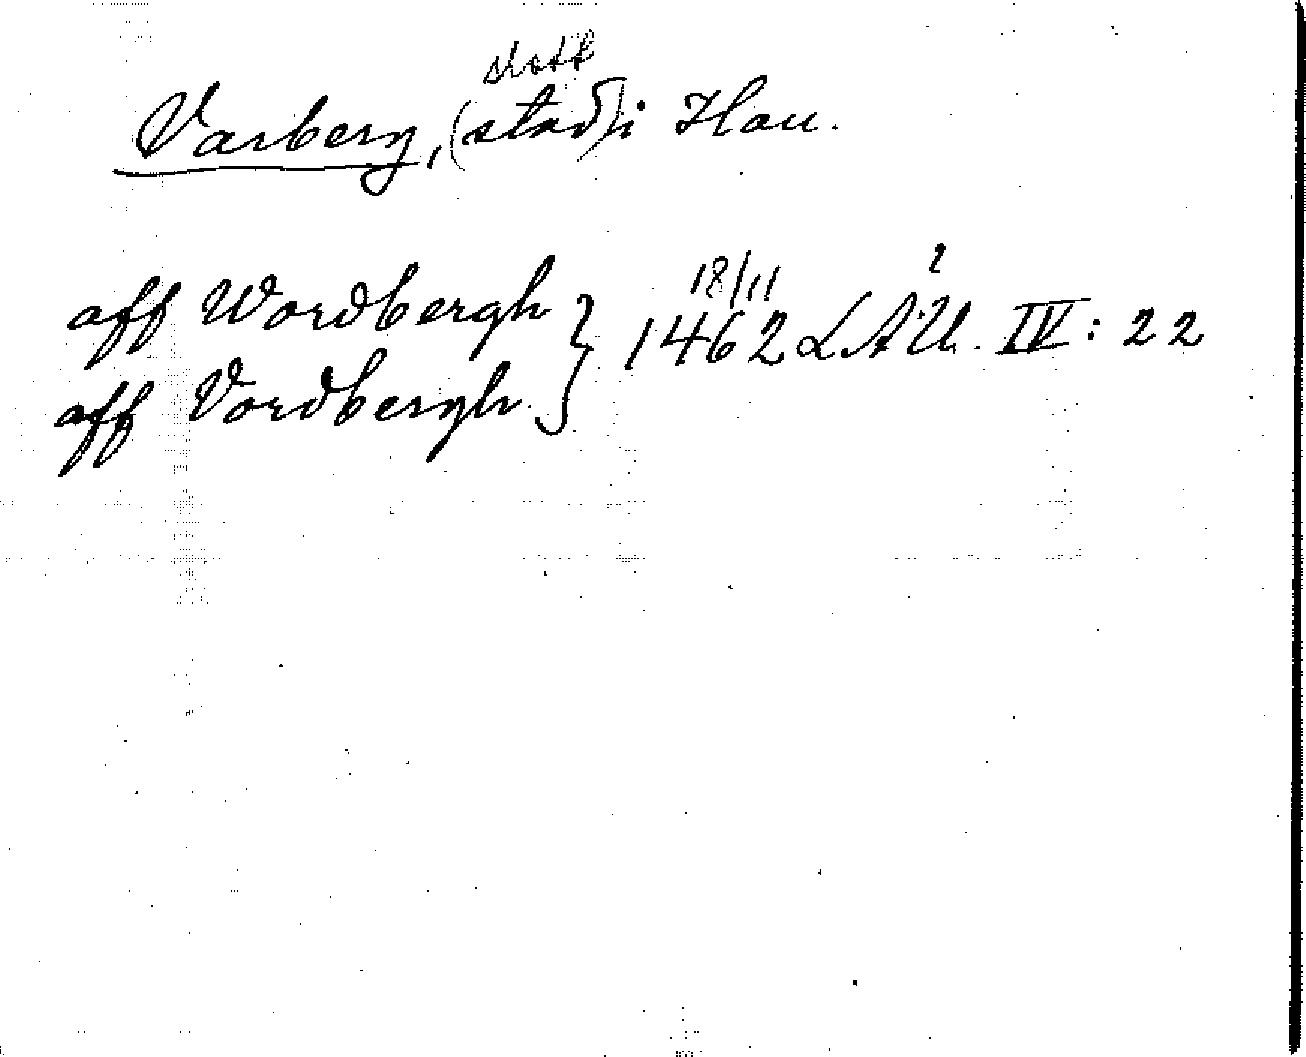 slott
Varberg, (stad) i Hall.
18/11 2
aff Wordbergh } 1462 LAU. IV: 22
aff Vordbergh